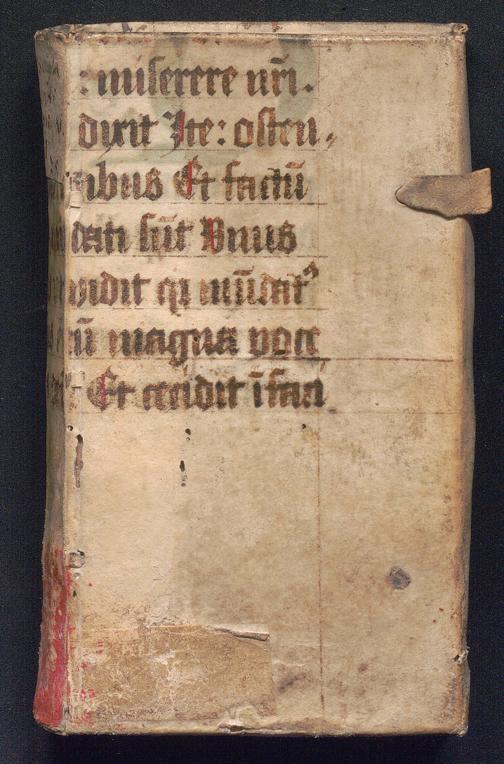 : miserere nr̄i.
dixit Ite: osten-
ibus Et factū
dati sūt Unus
vidit qꝫ mūdat᷒
cū magna voce
Et cecidit ī faci